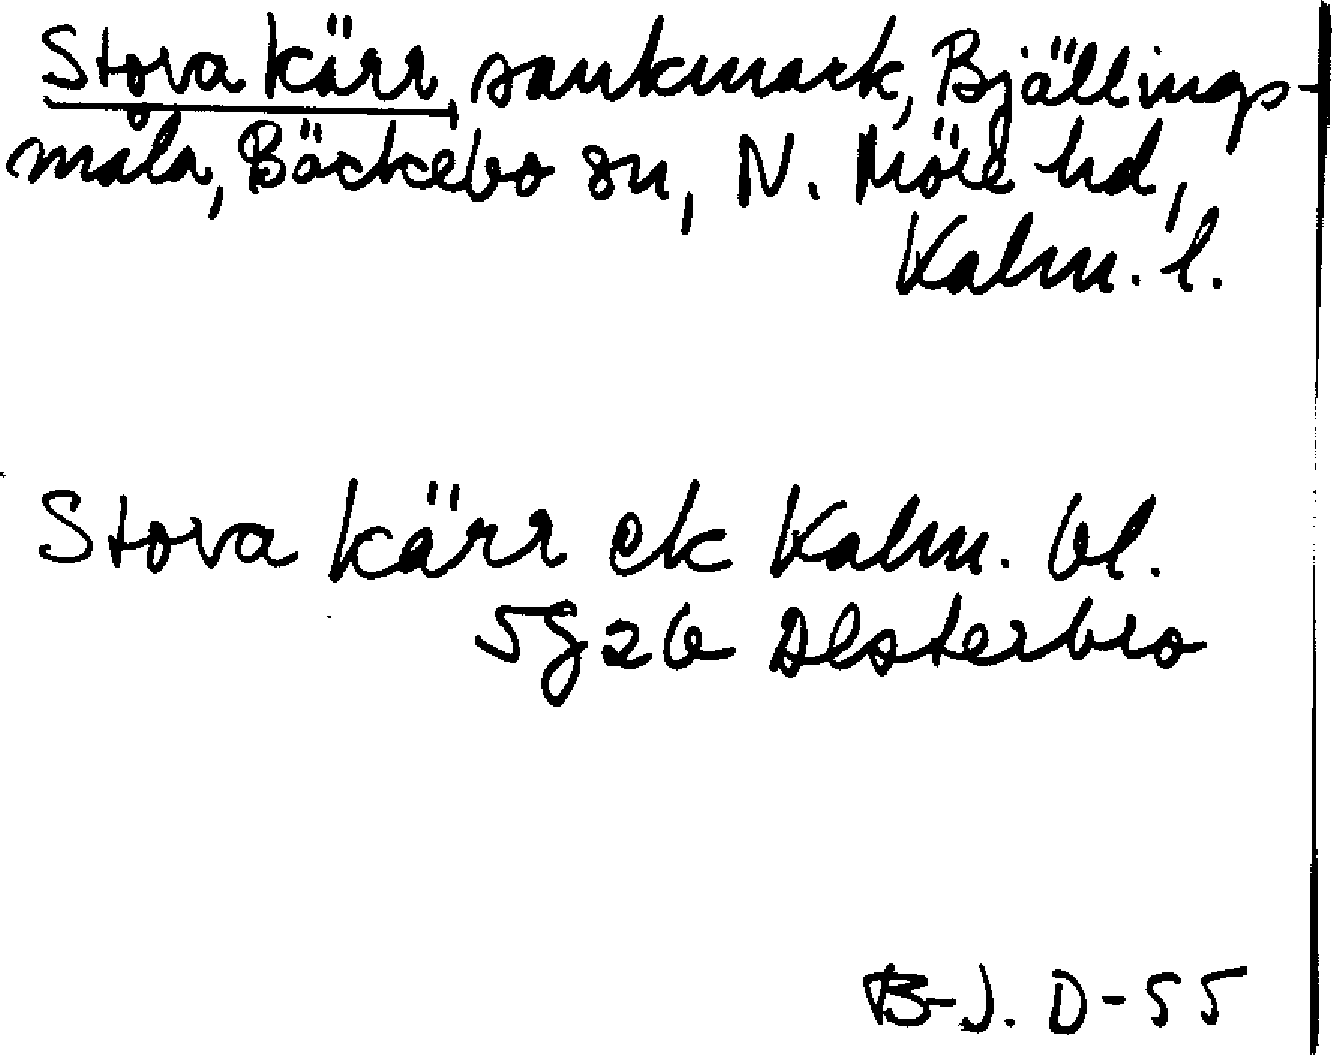 Stora kärr, sankmark, Bjällings-
måla, Bäckebo sn, N. Möre hd,
Kalm. l.
Stora kärr ek Kalm. bl.
5g2b Alsterbro
B-J. D-55